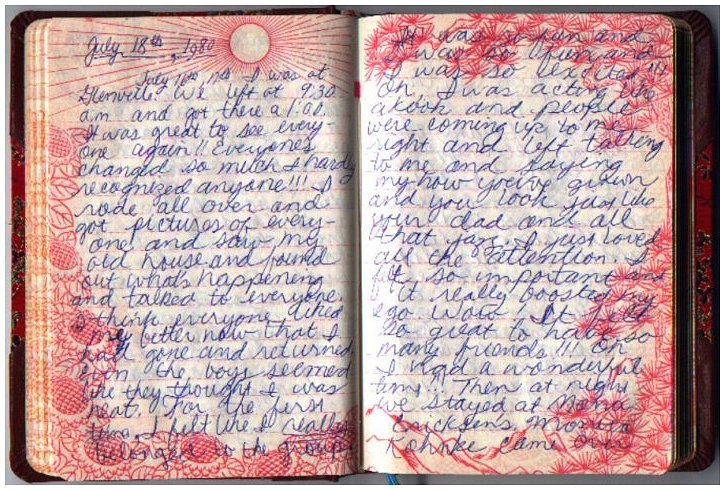 July 18th, 1980
July 16th, 17th I was at
Glenville. We left at 9:30
a.m. and got there a 1:01.
It was great to see every-
one again!! Everyone's
changed so much I hardly
recognized anyone!!! I
rode all over and
got pictures of every-
one and saw my
old house and found
out what's happening
and talked to everyone.
I think everyone liked
me better now that I
had gone and returned
Even the boys seemed
like they thought I was
neat. For the first
time I felt like I really
belonged to the group
It was so fun and
I was so fun and
I was so excited!!!
Oh, I was acting like
a kook and people
were coming up to me
right and left talking
to me and saying
my how you've grown
and you look just like
your dad and all
that jazz. I just loved
all the attention. I
felt so important and
it really boosted my
ego. Wow! It felt
so great to have so
many friends!!! Oh
I had a wonderful
time!!! Then at night
we stayed at Nana
Erickson's. Monica
Kohnke came over